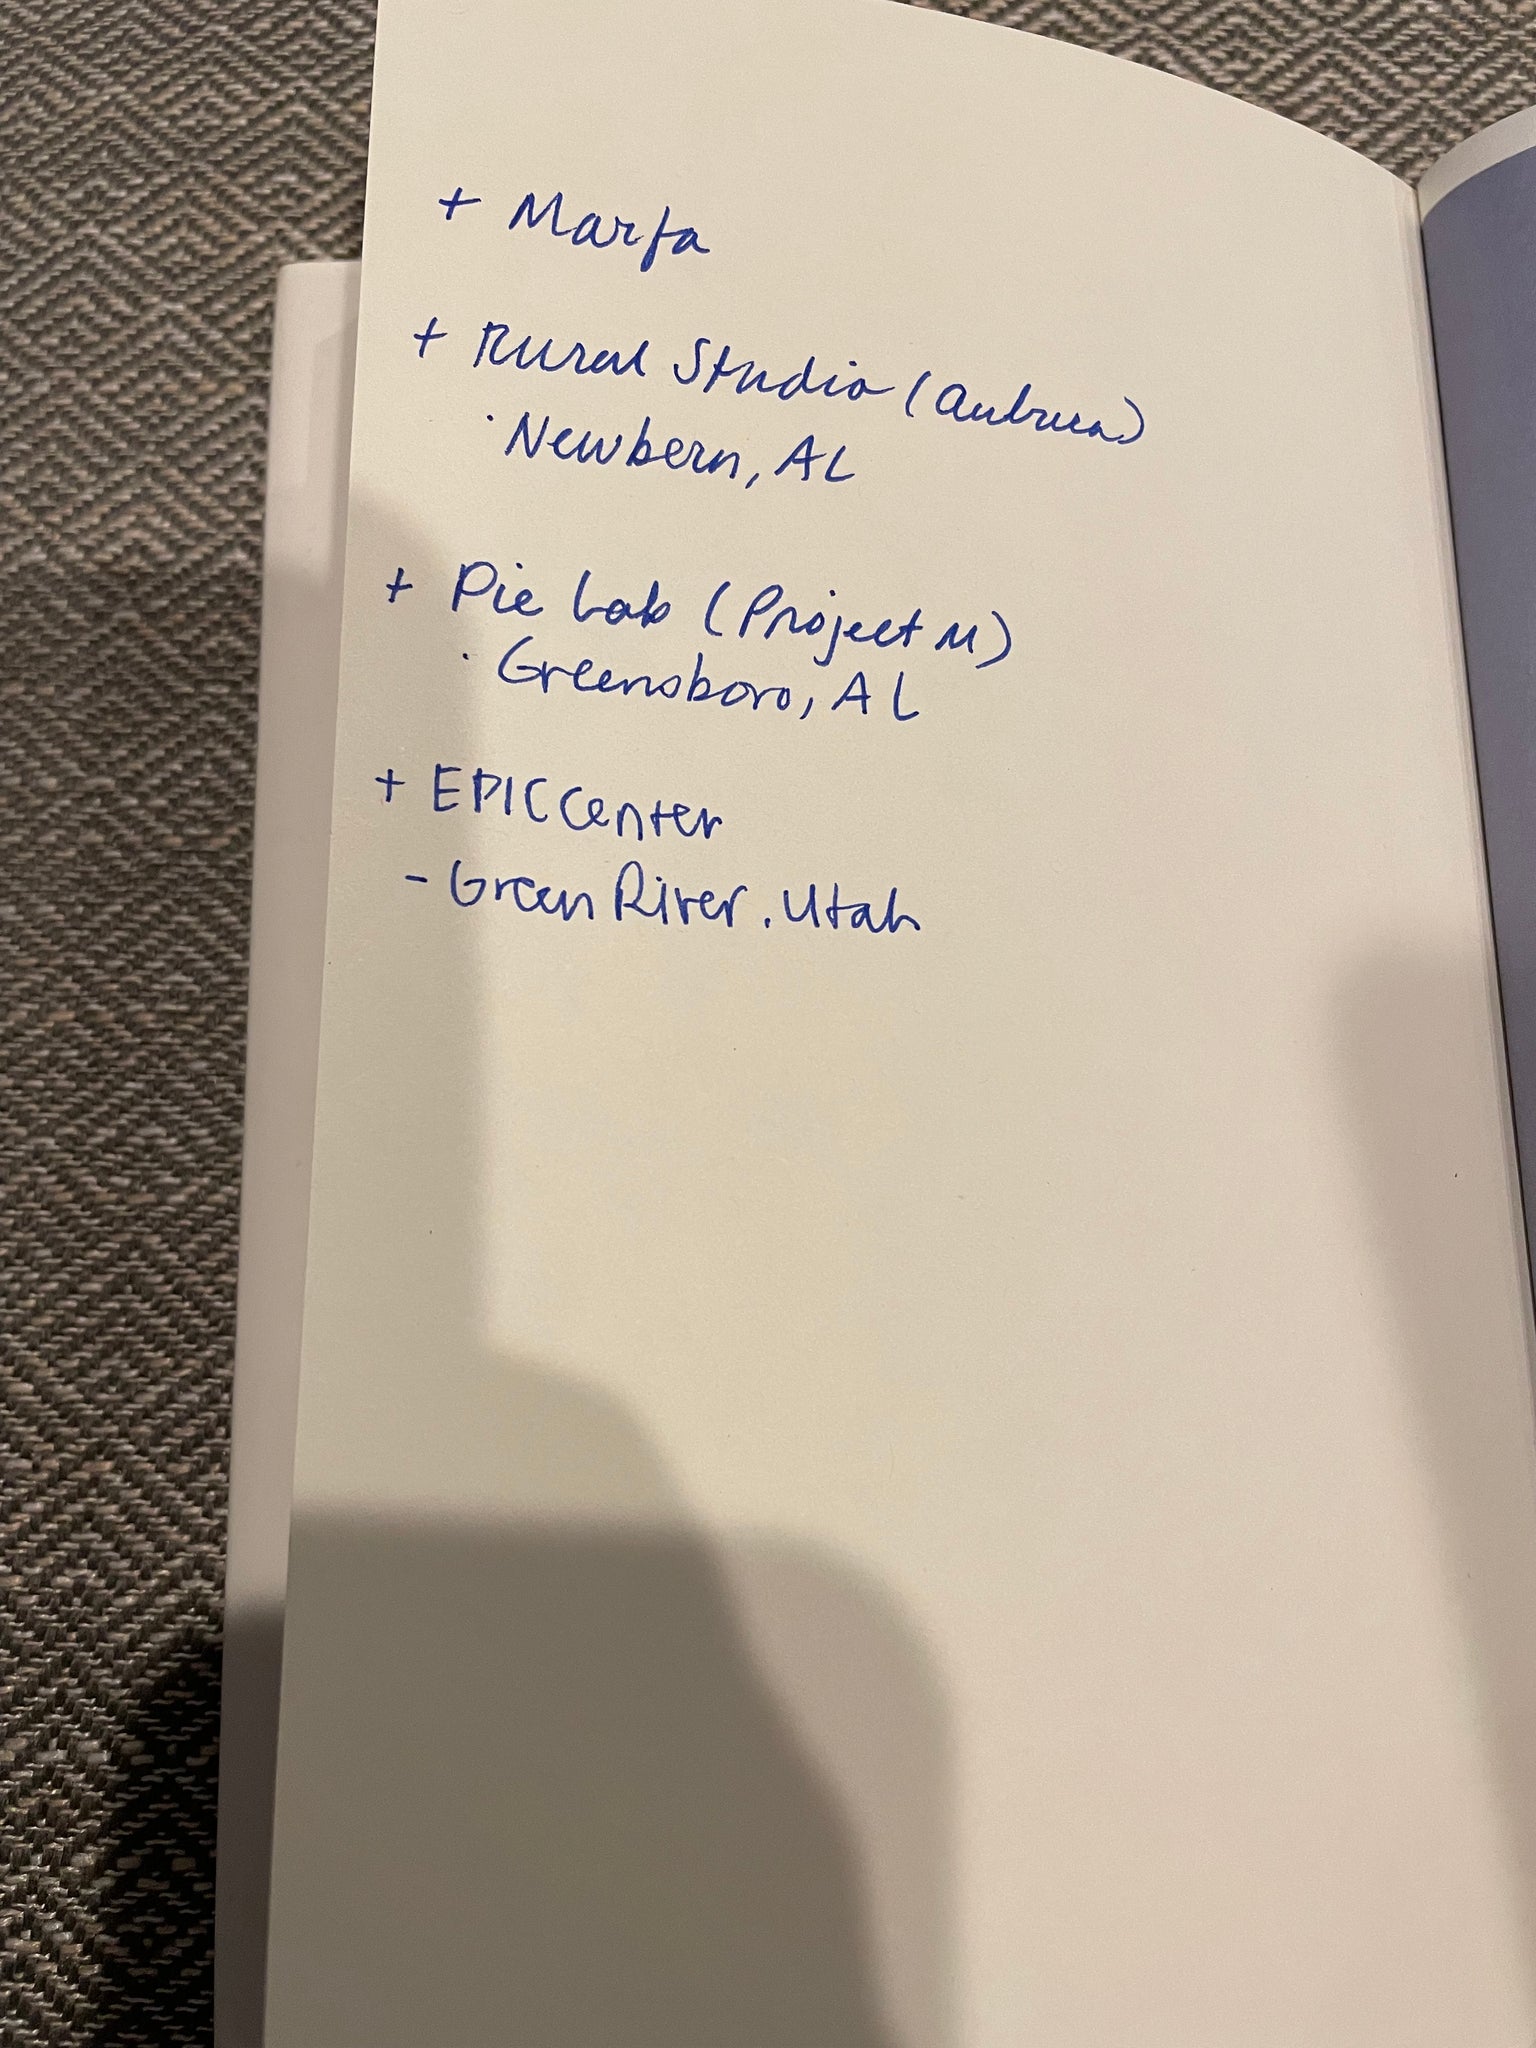 + Marfa
+ Rural Studio (Auburn)
· Newbern, AL
+ Pie Lab (Project M)
· Greensboro, AL
+ EPICCenter
- Green River. Utah